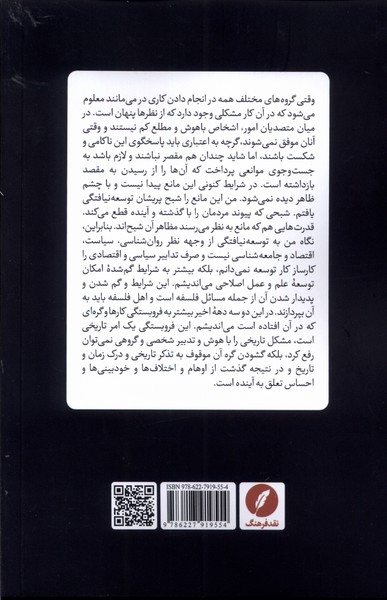 وقتی گروه‌های مختلف همه در انجام دادن کاری در می‌مانند معلوم
می‌شود که در آن کار مشکلی وجود دارد که از نظرها پنهان است. در
میان متصدیان امور، اشخاص باهوش و مطلع کم نیستند و وقتی
آنان موفق نمی‌شوند، گرچه به اعتباری باید پاسخگوی این ناکامی و
شکست باشند، اما شاید چندان هم مقصر نباشند و لازم باشد به
جست‌وجوی موانعی پرداخت که آن‌ها را از رسیدن به مقصد
بازداشته است. در شرایط کنونی این مانع پیدا نیست و با چشم
ظاهر دیده نمی‌شود. من این مانع را شبح پریشان توسعه‌نیافتگی
یافتم. شبحی که پیوند مردمان را با گذشته و آینده قطع می‌کند.
قدرت‌هایی هم که مانع به نظر می‌رسند مظاهر آن شبح‌اند. بنابراین،
نگاه من به توسعه‌نیافتگی از وجهه نظر روان‌شناسی، سیاست،
اقتصاد و جامعه‌شناسی نیست و صرف تدابیر سیاسی و اقتصادی را
کارساز کار توسعه نمی‌دانم، بلکه بیشتر به شرایط گم‌شدۀ امکان
توسعۀ علم و عمل اصلاحی می‌اندیشم. این شرایط و گم شدن و
پدیدار شدن آن از جمله مسائل فلسفه است و اهل فلسفه باید به
آن بپردازند. در این دو سه دهۀ اخیر بیشتر به فروبستگی کارها و گره‌ای
که در آن افتاده است می‌اندیشم. این فروبستگی یک امر تاریخی
است، مشکل تاریخی را با هوش و تدبیر شخصی و گروهی نمی‌توان
رفع کرد، بلکه گشودن گره آن موقوف به تذکر تاریخی و درک زمان و
تاریخ و در نتیجه گذشت از اوهام و اختلاف‌ها و خودبینی‌ها و
احساس تعلق به آینده است.
ISBN 978-622-7919-55-4
9 786227 919554
نقد فرهنگ